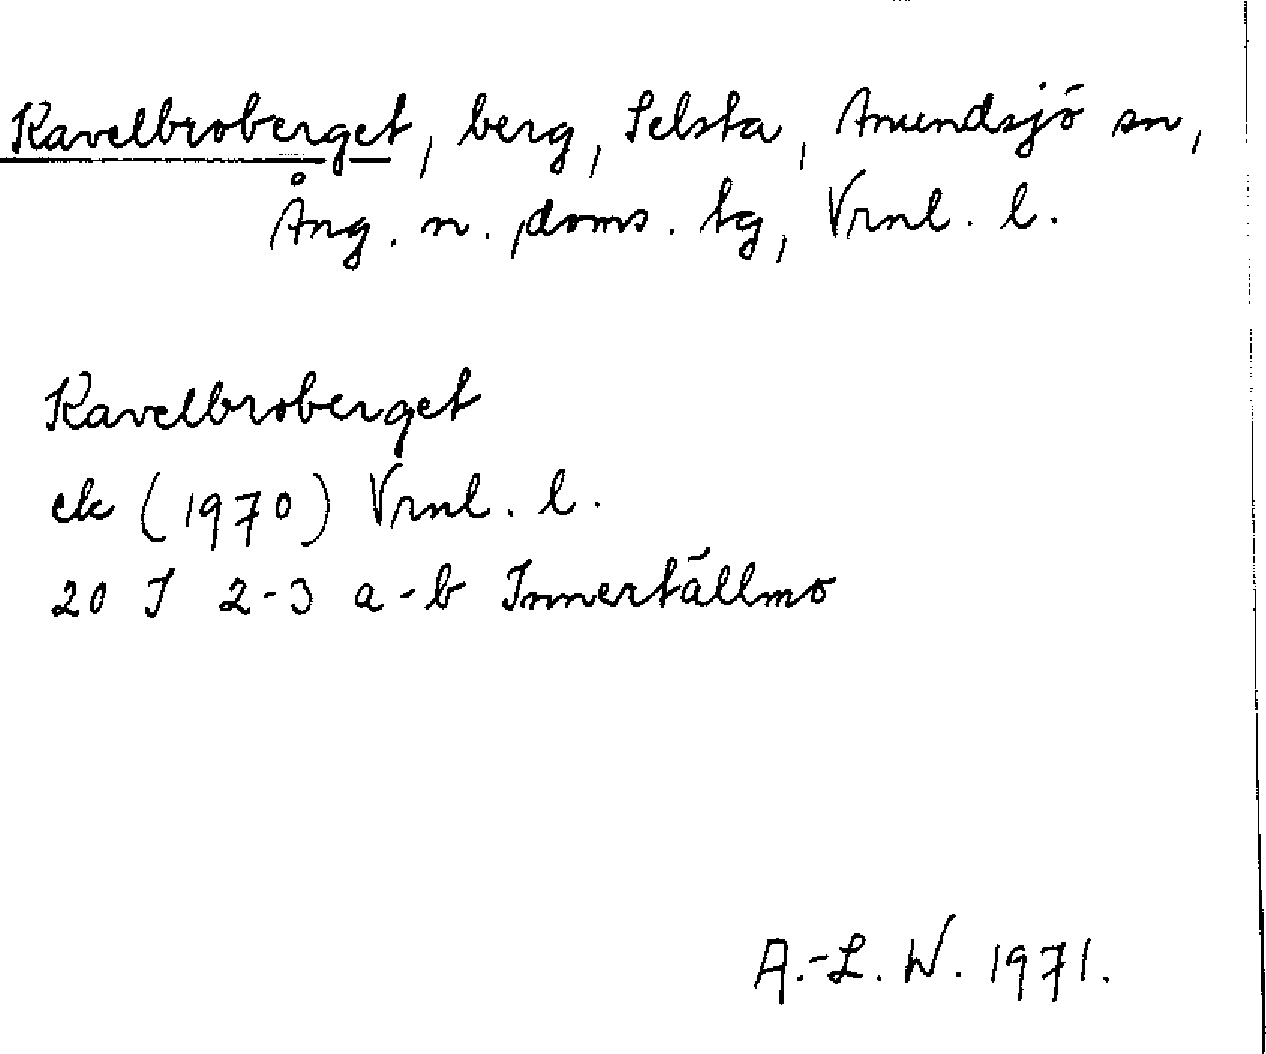 Kavelbroberget, berg, Selsta, Anundsjö sn,
Ång. n. doms. tg, Vrnl. l.
Kavelbroberget
ek (1970) Vrnl. l.
20 J 2-3 a-b Innertällmo
A.-L. W. 1971.